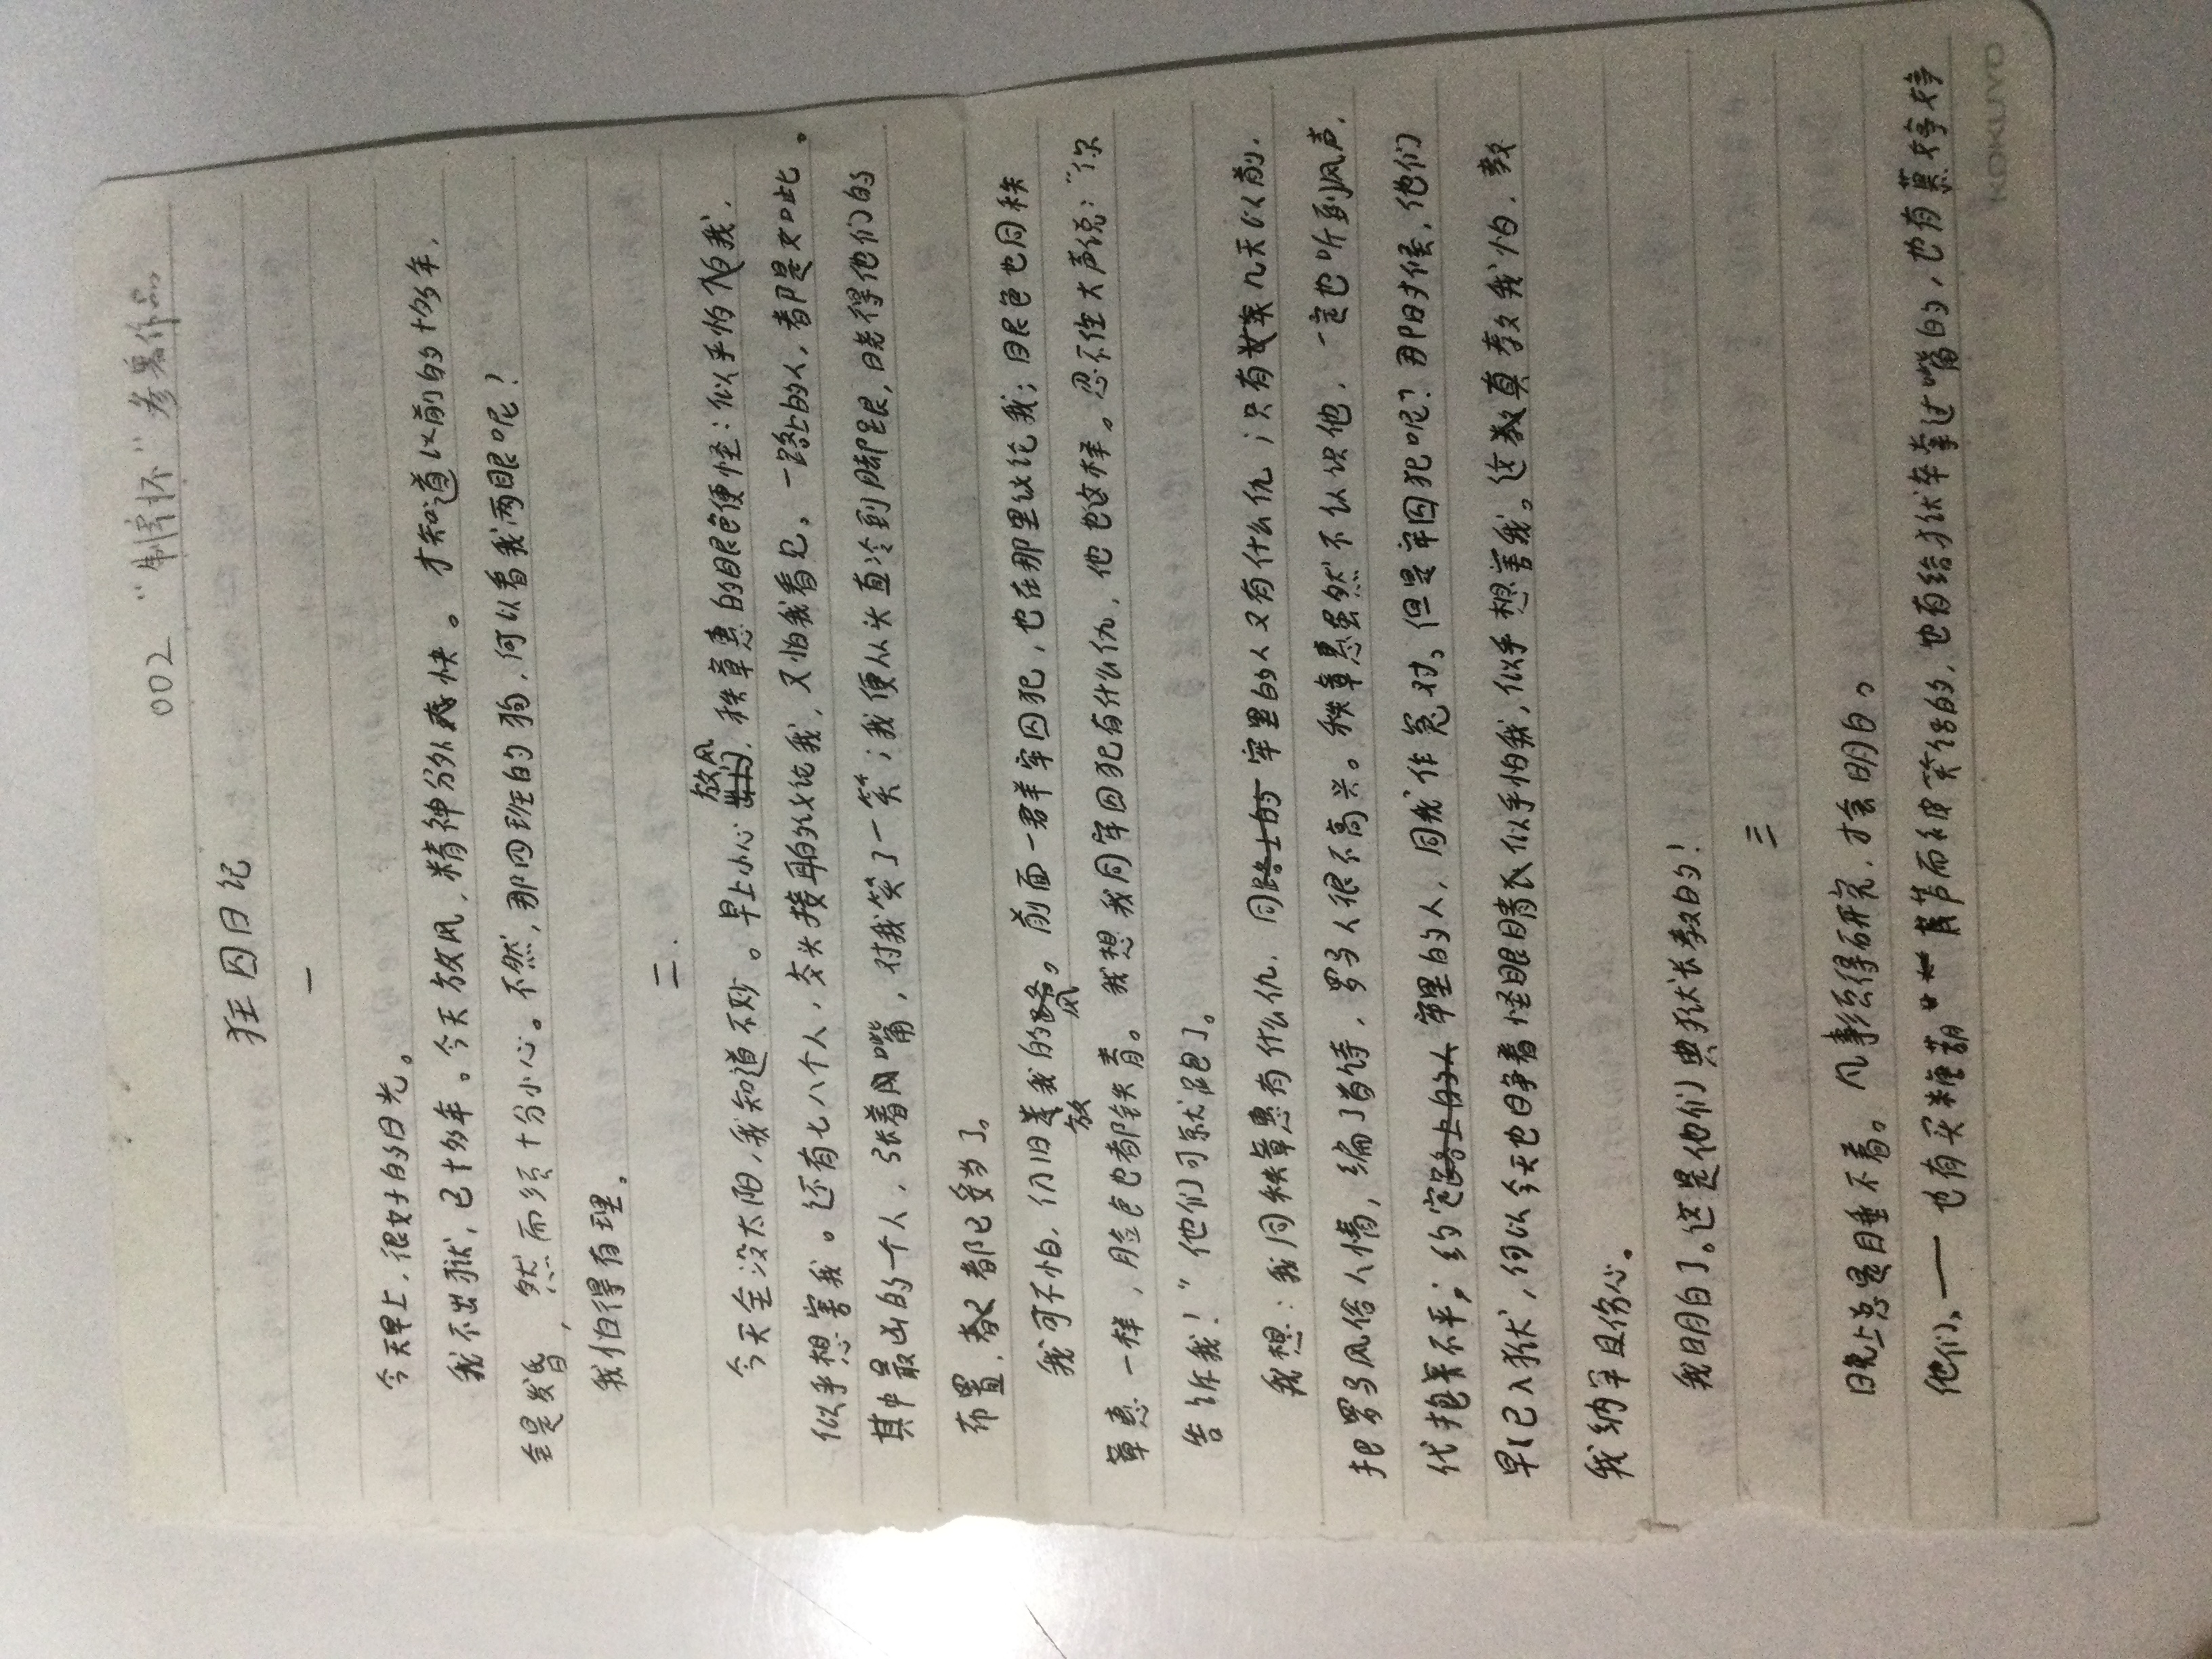 002 “制宪杯”参赛作品
狂囚日记
一
今天早上，很好的日光。
我不出狱，已十多年。今天放风，精神分外爽快。才知道以前的十多年，
全是发昏，然而须十分小心。不然，那四班的狗，何以看我两眼呢？
我怕得有理。
二.
今天全没太阳，我知道不妙。早上小心放风，秩章惠的眼色便怪：似乎怕我，
似乎想害我。还有七八个人，交头接耳的议论我，又怕我看见。一路上的人，都是如此。
其中最凶的一个人，张着嘴，对我笑了一笑；我便从头直冷到脚跟，晓得他们的
布置，都已妥当了。
我可不怕，仍旧放我的风。前面一群牢囚犯，也在那里议论我；眼色也同秩
章惠一样，脸色也都铁青。我想我同牢囚犯有什么仇，他也这样。忍不住大声说：“你
告诉我！”他们可就跑了。
我想：我同秩章惠有什么仇，同牢里的人又有什么仇；只有几天以前，
把罗马风俗人情，编了首诗，罗马人很不高兴。秩章惠虽然不认识他，一定也听到风声，
代抱不平；约定牢里的人，同我作冤对。但是牢囚犯呢？那时候，他们
早已入狱，何以今天也睁着怪眼睛，似乎怕我，似乎想害我。这真教我怕，教
我纳罕且伤心。
我明白了。这是他们典狱长教的！
三
晚上总是睡不着。凡事须得研究，才会明白。
他们，—— 也有买糖葫芦而被笑话的，也有给狱卒掌过嘴的，也有慕婷婷
KOKUYO